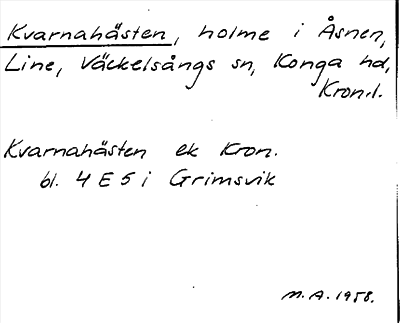 Kvarnahästen, holme i Åsnen,
Line, Väckelsångs sn, Konga hd,
Kron.l.
Kvarnahästen ek Kron.
bl. 4 E 5 i Grimsvik
M.A. 1958.